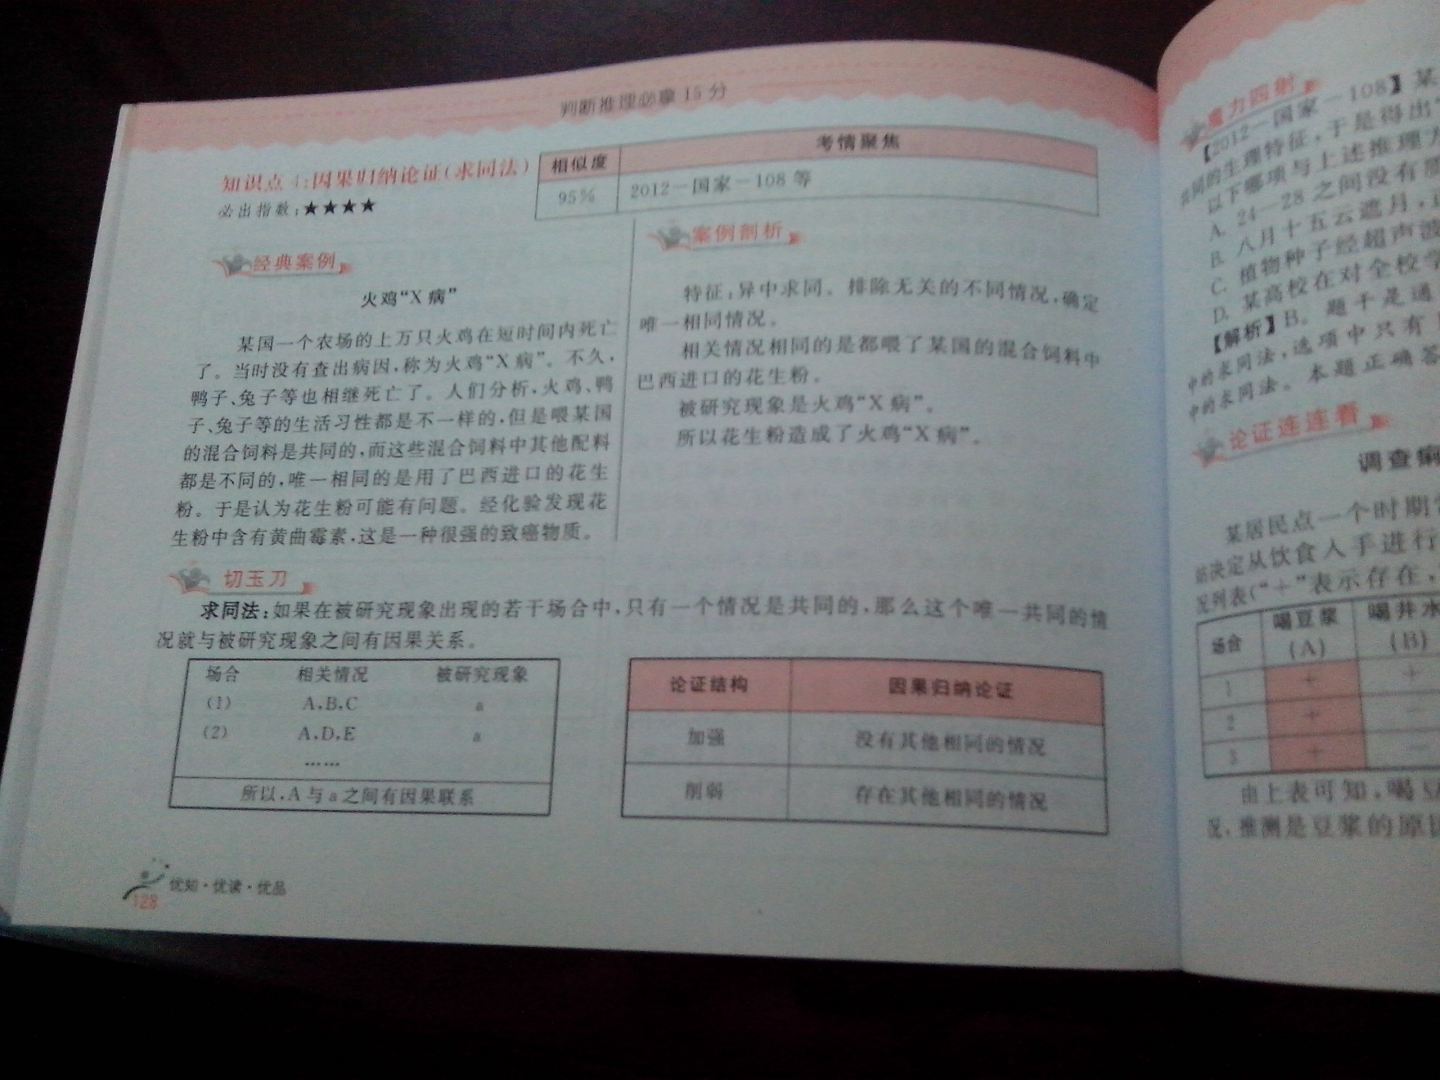 判断推理必拿15分
知识点4:因果归纳论证(求同法)
必出指数:★★★★
相似度
考情聚焦
95%
2012-国家-108等
经典案例
火鸡“X病”
某国一个农场的上万只火鸡在短时间内死亡
了。当时没有查出病因,称为火鸡“X病”。不久,
鸭子、兔子等也相继死亡了。人们分析,火鸡、鸭
子、兔子等的生活习性都是不一样的,但是喂某国
的混合饲料是共同的,而这些混合饲料中其他配料
都是不同的,唯一相同的是用了巴西进口的花生
粉。于是认为花生粉可能有问题。经化验发现花
生粉中含有黄曲霉素,这是一种很强的致癌物质。
案例剖析
特征:异中求同。排除无关的不同情况,确定
唯一相同情况。
相关情况相同的是都喂了某国的混合饲料中
巴西进口的花生粉。
被研究现象是火鸡“X病”。
所以花生粉造成了火鸡“X病”。
切玉刀
求同法:如果在被研究现象出现的若干场合中,只有一个情况是共同的,那么这个唯一共同的情
况就与被研究现象之间有因果关系。
场合 相关情况 被研究现象
(1) A,B,C a
(2) A,D,E a
……
所以,A与a之间有因果联系
论证结构 因果归纳论证
加强 没有其他相同的情况
削弱 存在其他相同的情况
优知·优读·优品
128
魔力四射
【2012-国家-108】某
共同的生理特征,于是得出“
以下哪项与上述推理方
A. 24-28之间没有质
B. 八月十五云遮月,正
C. 植物种子经超声波
D. 某高校在对全校学
【解析】B。题干是通
中的求同法,选项中只有
中的求同法。本题正确答
论证连连看
调查
某居民点一个时期
决定从饮食入手进行
况列表(“+”表示存在,
场合 喝豆浆(A) 喝井水(B)
1 + +
2 + -
3 + -
由上表可知,喝豆
况,推测是豆浆的原因